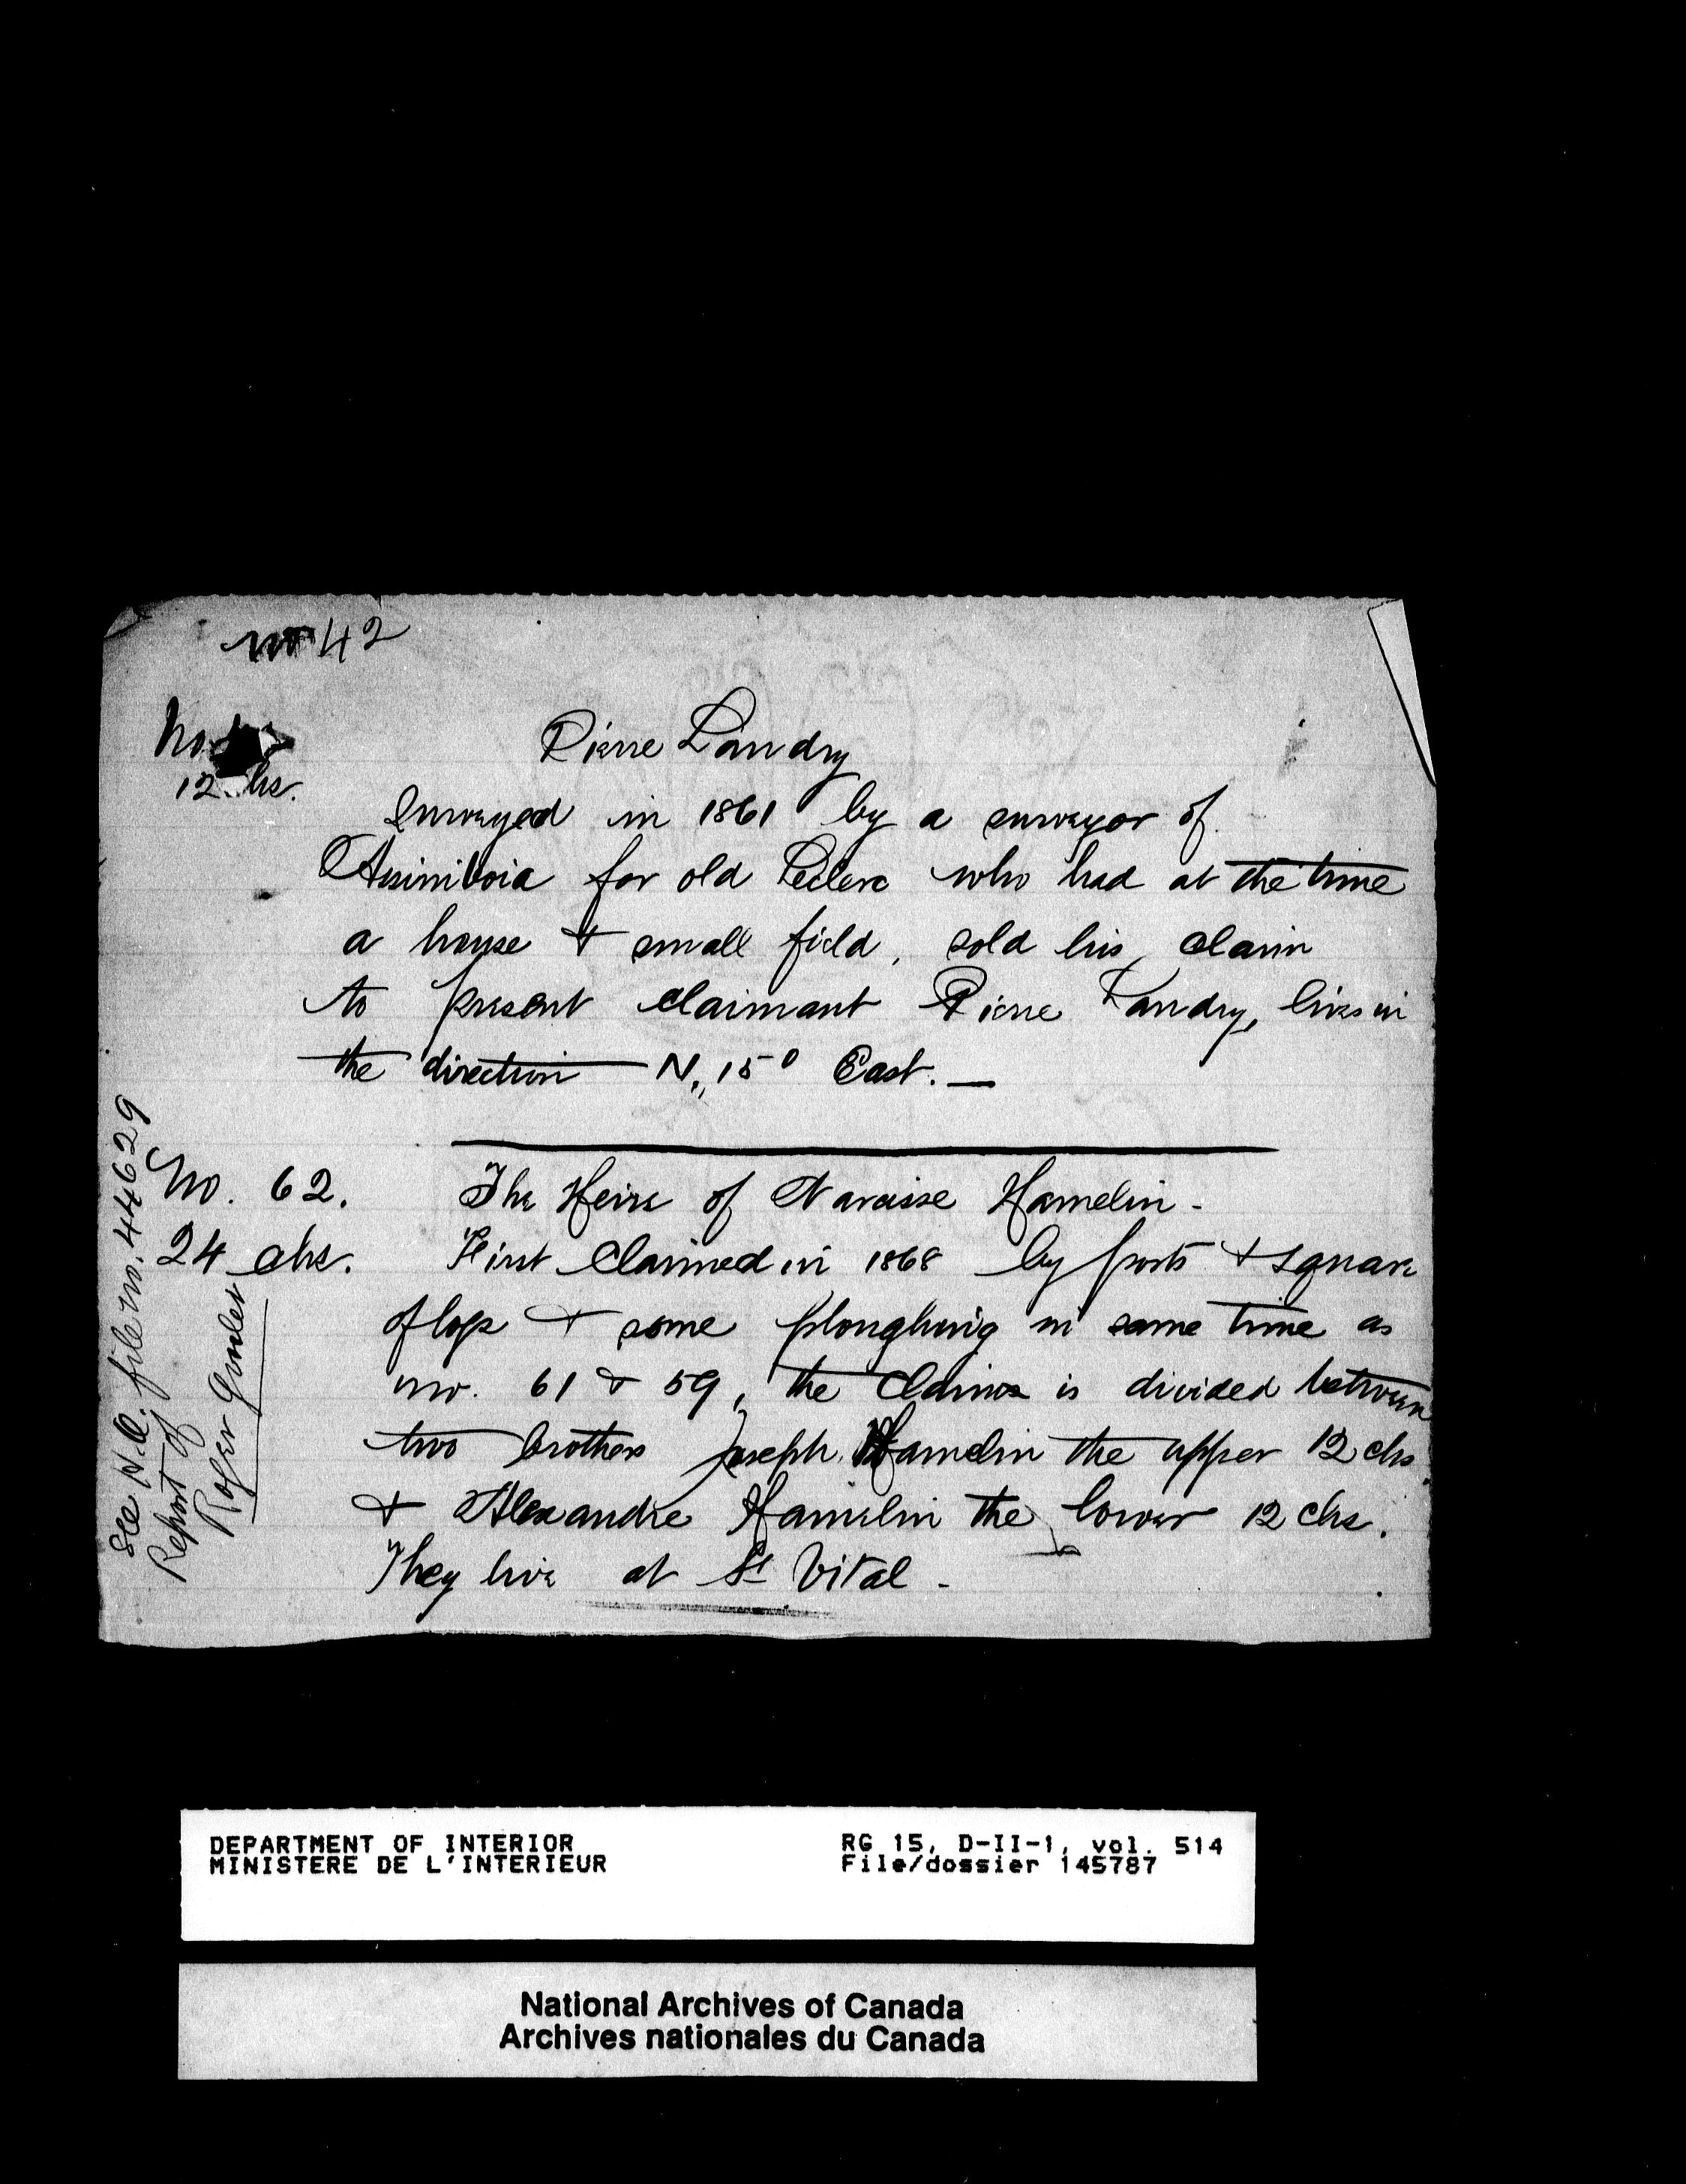 no 42
No.
12 chs.
Pierre Landry
Surveyed in 1861 by a surveyor of
Assiniboia for old Leclerc who had at the time
a house & small field, sold his claim
to present claimant Pierre Landry, lives in
the direction N. 15° East. —
No. 62.
24 chs.
The Heirs of Narcisse Hamelin -
First Claimed in 1868 by posts & square
of logs & some ploughing in same time as
no. 61 & 59, the Claims is divided between
two brothers Joseph Hamelin the upper 12 chs.
& Alexandre Hamelin the lower 12 chs.
They live at St Vital -
See H.O. file no. 44629
Report of
Roger Goulet
DEPARTMENT OF INTERIOR
MINISTERE DE L'INTERIEUR
RG 15, D-II-1, vol. 514
File/dossier 145787
National Archives of Canada
Archives nationales du Canada